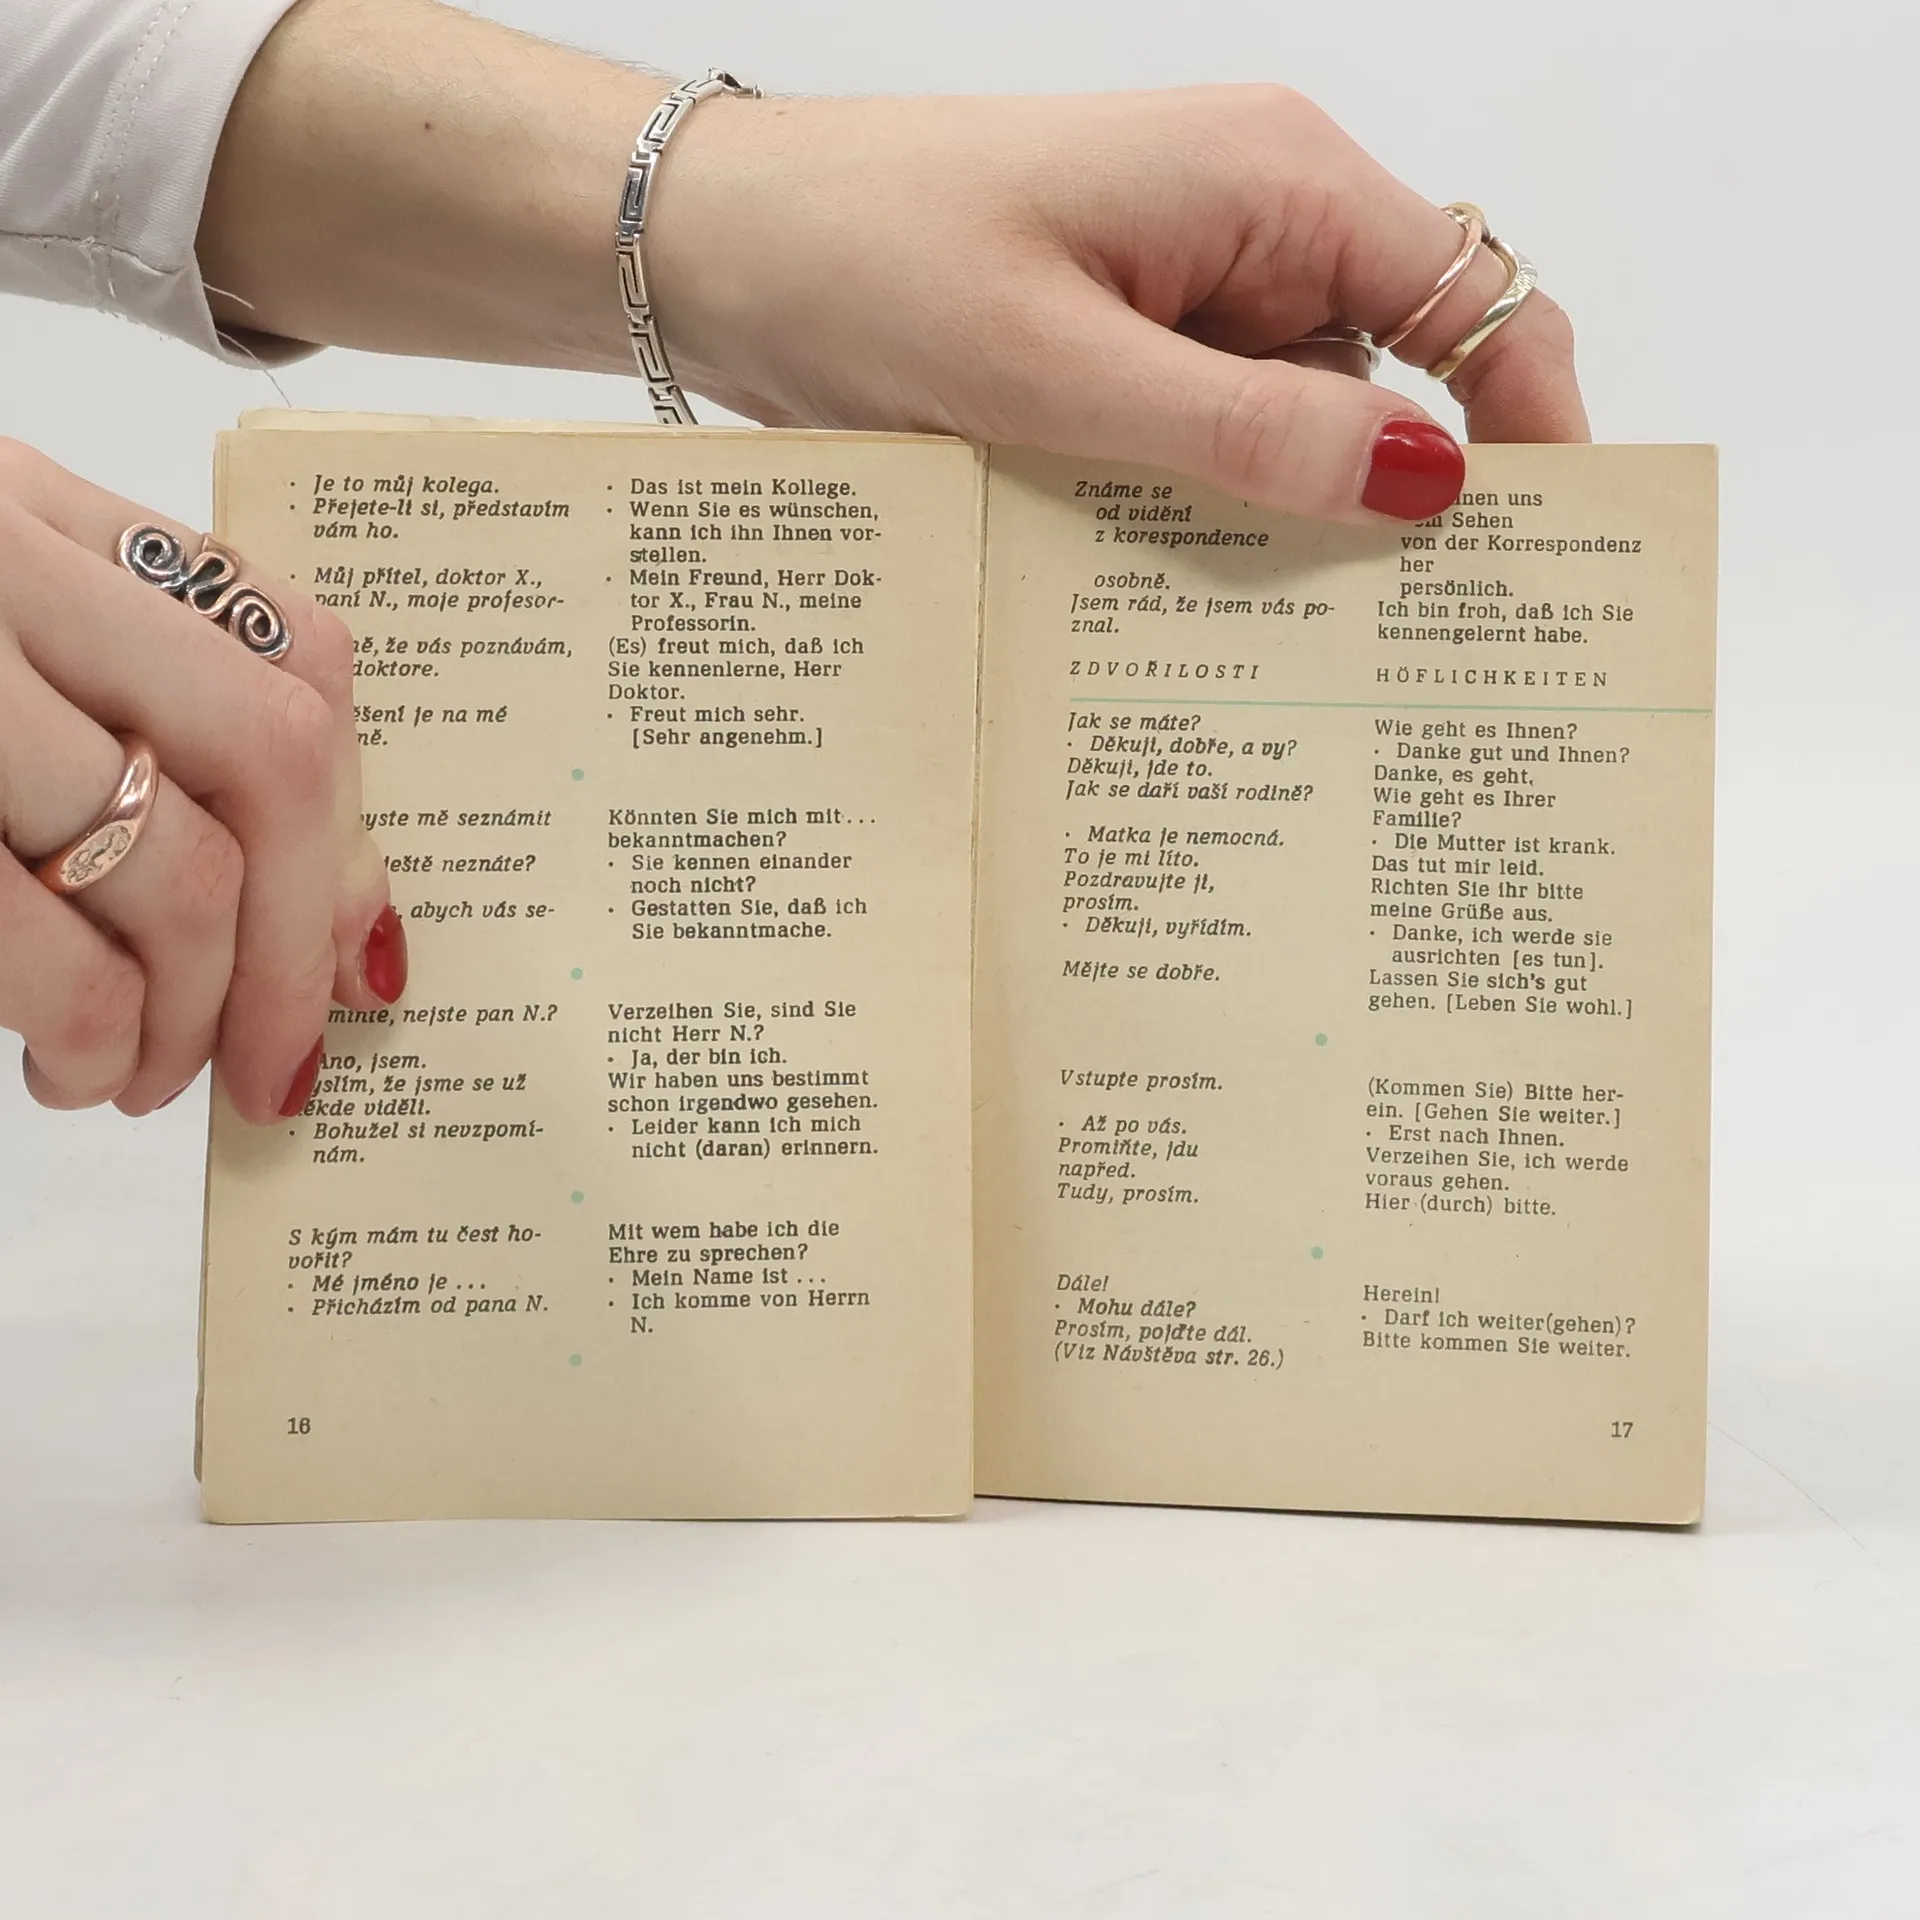 · Je to můj kolega.
· Přejete-li si, představím
vám ho.
· Můj přítel, doktor X.,
paní N., moje profesor-
že vás poznávám,
doktore.
je na mé
S kým mám tu čest ho-
vořit?
· Mé jméno je ...
· Přicházím od pana N.
mě seznámit
ještě neznáte?
abych vás se-
nejste pan N.?
Ano, jsem.
že jsme se už
viděli.
· Bohužel si nevzpomí-
nám.
16
· Das ist mein Kollege.
· Wenn Sie es wünschen,
kann ich ihn Ihnen vor-
stellen.
· Mein Freund, Herr Dok-
tor X., Frau N., meine
Professorin.
(Es) freut mich, daß ich
Sie kennenlerne, Herr
Doktor.
· Freut mich sehr.
[Sehr angenehm.]
Könnten Sie mich mit...
bekanntmachen?
· Sie kennen einander
noch nicht?
· Gestatten Sie, daß ich
Sie bekanntmache.
Verzeihen Sie, sind Sie
nicht Herr N.?
· Ja, der bin ich.
Wir haben uns bestimmt
schon irgendwo gesehen.
· Leider kann ich mich
nicht (daran) erinnern.
Mit wem habe ich die
Ehre zu sprechen?
· Mein Name ist ...
· Ich komme von Herrn
N.
Známe se
od vidění
z korespondence
osobně.
Jsem rád, že jsem vás po-
znal.
ZDVOŘILOSTI
Jak se máte?
· Děkuji, dobře, a vy?
Děkuji, jde to.
Jak se daří vaší rodině?
· Matka je nemocná.
To je mi líto.
Pozdravujte ji,
prosím.
· Děkuji, vyřídím.
Mějte se dobře.
Vstupte prosím.
· Až po vás.
Promiňte, jdu
napřed.
Tudy, prosím.
Dále!
· Mohu dále?
Prosím, pojďte dál.
(Viz Návštěva str. 26.)
uns
Sehen
von der Korrespondenz
her
persönlich.
Ich bin froh, daß ich Sie
kennengelernt habe.
HÖFLICHKEITEN
Wie geht es Ihnen?
· Danke gut und Ihnen?
Danke, es geht.
Wie geht es Ihrer
Familie?
· Die Mutter ist krank.
Das tut mir leid.
Richten Sie ihr bitte
meine Grüße aus.
· Danke, ich werde sie
ausrichten [es tun].
Lassen Sie sich's gut
gehen. [Leben Sie wohl.]
(Kommen Sie) Bitte her-
ein. [Gehen Sie weiter.]
· Erst nach Ihnen.
Verzeihen Sie, ich werde
voraus gehen.
Hier (durch) bitte.
Herein!
· Darf ich weiter(gehen)?
Bitte kommen Sie weiter.
17